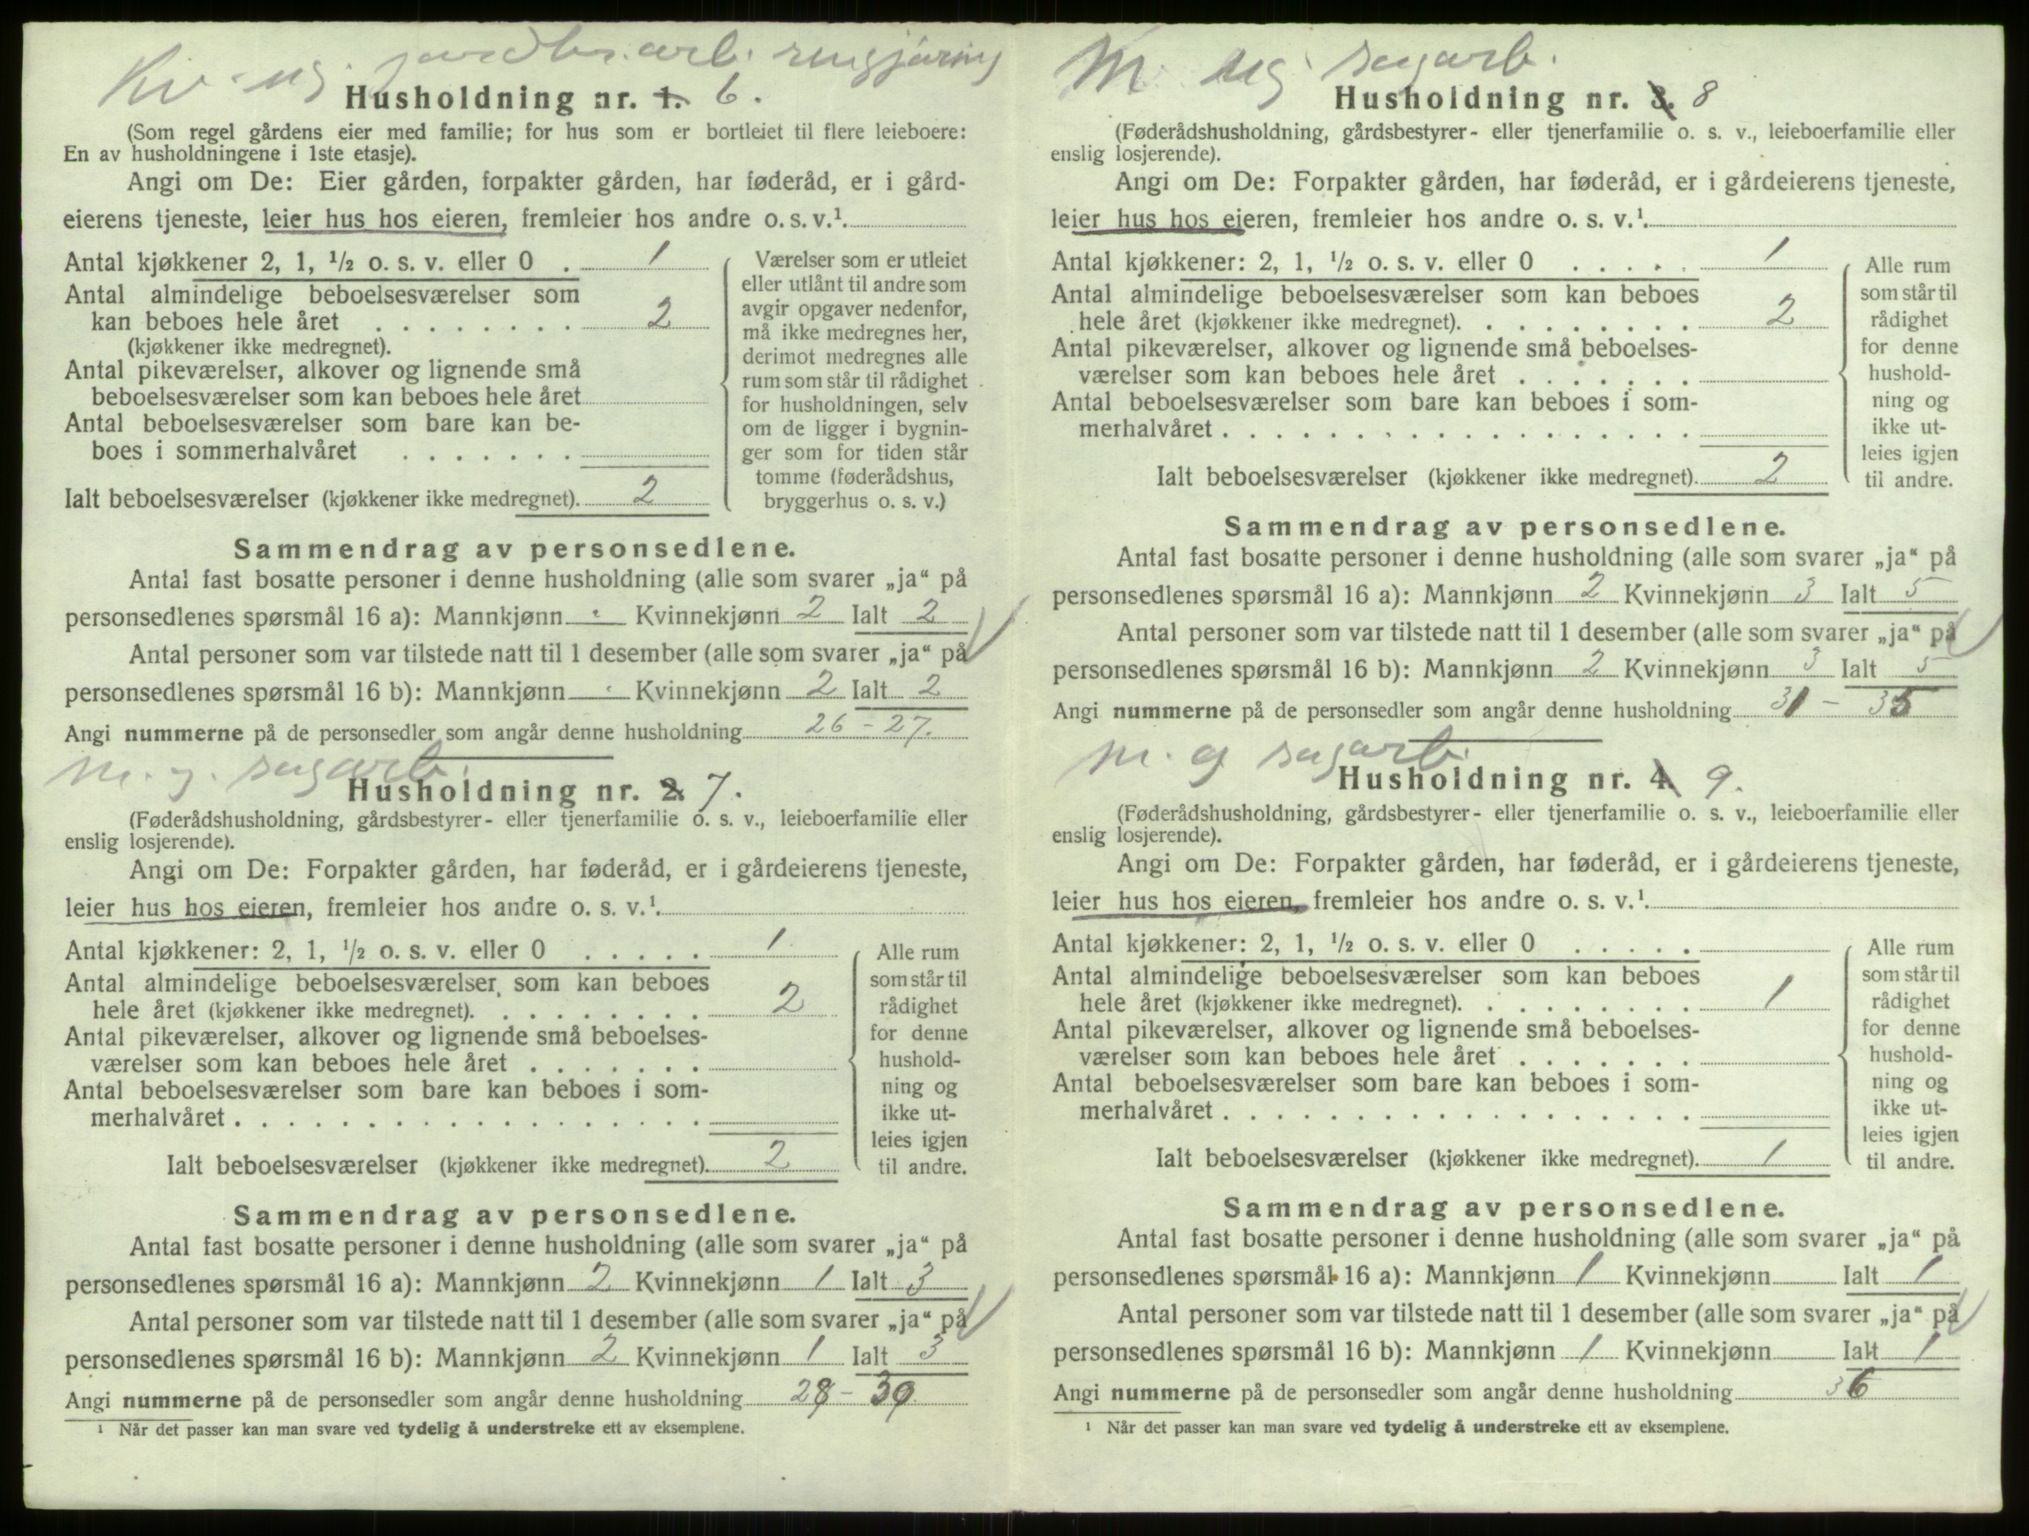 Kv. ug. jordbr.arb. rengjøring
Husholdning nr. 1. 6.
(Som regel gårdens eier med familie; for hus som er bortleiet til flere leieboere:
En av husholdningene i 1ste etasje).
Angi om De: Eier gården, forpakter gården, har føderåd, er i gård-
eierens tjeneste, leier hus hos eieren, fremleier hos andre o. s. v.¹
Antal kjøkkener 2, 1, ½ o. s. v. eller 0 . 1
Antal almindelige beboelsesværelser som
kan beboes hele året . . . . . . . . 2
(kjøkkener ikke medregnet).
Antal pikeværelser, alkover og lignende små
beboelsesværelser som kan beboes hele året
Antal beboelsesværelser som bare kan be-
boes i sommerhalvåret . . . . . . .
Ialt beboelsesværelser (kjøkkener ikke medregnet). 2
Værelser som er utleiet
eller utlånt til andre som
avgir opgaver nedenfor,
må ikke medregnes her,
derimot medregnes alle
rum som står til rådighet
for husholdningen, selv
om de ligger i bygnin-
ger som for tiden står
tomme (føderådshus,
bryggerhus o. s. v.)
Sammendrag av personsedlene.
Antal fast bosatte personer i denne husholdning (alle som svarer „ja“ på
personsedlenes spørsmål 16 a): Mannkjønn - Kvinnekjønn 2 Ialt 2
Antal personer som var tilstede natt til 1 desember (alle som svarer „ja“ på
personsedlenes spørsmål 16 b): Mannkjønn - Kvinnekjønn 2 Ialt 2
Angi nummerne på de personsedler som angår denne husholdning 26 - 27.
m. g. sagarb.
Husholdning nr. 2. 7.
(Føderådshusholdning, gårdsbestyrer- eller tjenerfamilie o. s. v., leieboerfamilie eller
enslig losjerende).
Angi om De: Forpakter gården, har føderåd, er i gårdeierens tjeneste,
leier hus hos eieren, fremleier hos andre o. s. v.¹.
Antal kjøkkener: 2, 1, ½ o. s. v. eller 0 . . . . . 1
Antal almindelige beboelsesværelser som kan beboes
hele året (kjøkkener ikke medregnet). . . . . . . . . 2
Antal pikeværelser, alkover og lignende små beboelses-
værelser som kan beboes hele året . . . . . . .
Antal beboelsesværelser som bare kan beboes i som-
merhalvåret . . . . . . . . . . . . . . . . . .
Ialt beboelsesværelser (kjøkkener ikke medregnet). 2
Alle rum
som står til
rådighet
for denne
hushold-
ning og
ikke ut-
leies igjen
til andre.
Sammendrag av personsedlene.
Antal fast bosatte personer i denne husholdning (alle som svarer „ja“ på
personsedlenes spørsmål 16 a): Mannkjønn 2 Kvinnekjønn 1 Ialt 3
Antal personer som var tilstede natt til 1 desember (alle som svarer „ja“ på
personsedlenes spørsmål 16 b): Mannkjønn 2 Kvinnekjønn 1 Ialt 3
Angi nummerne på de personsedler som angår denne husholdning 28 - 30
¹ Når det passer kan man svare ved tydelig å understreke ett av eksemplene.
M. ug sagarb.
Husholdning nr. 3. 8
(Føderådshusholdning, gårdsbestyrer- eller tjenerfamilie o. s. v., leieboerfamilie eller
enslig losjerende).
Angi om De: Forpakter gården, har føderåd, er i gårdeierens tjeneste,
leier hus hos eieren, fremleier hos andre o. s. v.¹.
Antal kjøkkener: 2, 1, ½ o. s. v. eller 0 . . . . . 1
Antal almindelige beboelsesværelser som kan beboes
hele året (kjøkkener ikke medregnet). . . . . . . . . 2
Antal pikeværelser, alkover og lignende små beboelses-
værelser som kan beboes hele året . . . . . . .
Antal beboelsesværelser som bare kan beboes i som-
merhalvåret . . . . . . . . . . . . . . . . . .
Ialt beboelsesværelser (kjøkkener ikke medregnet). 2
Alle rum
som står til
rådighet
for denne
hushold-
ning og
ikke ut-
leies igjen
til andre.
Sammendrag av personsedlene.
Antal fast bosatte personer i denne husholdning (alle som svarer „ja“ på
personsedlenes spørsmål 16 a): Mannkjønn 2 Kvinnekjønn 3 Ialt 5
Antal personer som var tilstede natt til 1 desember (alle som svarer „ja“ på
personsedlenes spørsmål 16 b): Mannkjønn 2 Kvinnekjønn 3 Ialt 5
Angi nummerne på de personsedler som angår denne husholdning 31 - 35
m. g sagarb.
Husholdning nr. 4. 9.
(Føderådshusholdning, gårdsbestyrer- eller tjenerfamilie o. s. v., leieboerfamilie eller
enslig losjerende).
Angi om De: Forpakter gården, har føderåd, er i gårdeierens tjeneste,
leier hus hos eieren, fremleier hos andre o. s. v.¹.
Antal kjøkkener: 2, 1, ½ o. s. v. eller 0 . . . . .
Antal almindelige beboelsesværelser som kan beboes
hele året (kjøkkener ikke medregnet). . . . . . . . . 1
Antal pikeværelser, alkover og lignende små beboelses-
værelser som kan beboes hele året . . . . . . .
Antal beboelsesværelser som bare kan beboes i som-
merhalvåret . . . . . . . . . . . . . . . . . .
Ialt beboelsesværelser (kjøkkener ikke medregnet). 1
Alle rum
som står til
rådighet
for denne
hushold-
ning og
ikke ut-
leies igjen
til andre.
Sammendrag av personsedlene.
Antal fast bosatte personer i denne husholdning (alle som svarer „ja“ på
personsedlenes spørsmål 16 a): Mannkjønn 1 Kvinnekjønn Ialt 1
Antal personer som var tilstede natt til 1 desember (alle som svarer „ja“ på
personsedlenes spørsmål 16 b): Mannkjønn 1 Kvinnekjønn Ialt 1
Angi nummerne på de personsedler som angår denne husholdning 36
¹ Når det passer kan man svare ved tydelig å understreke ett av eksemplene.